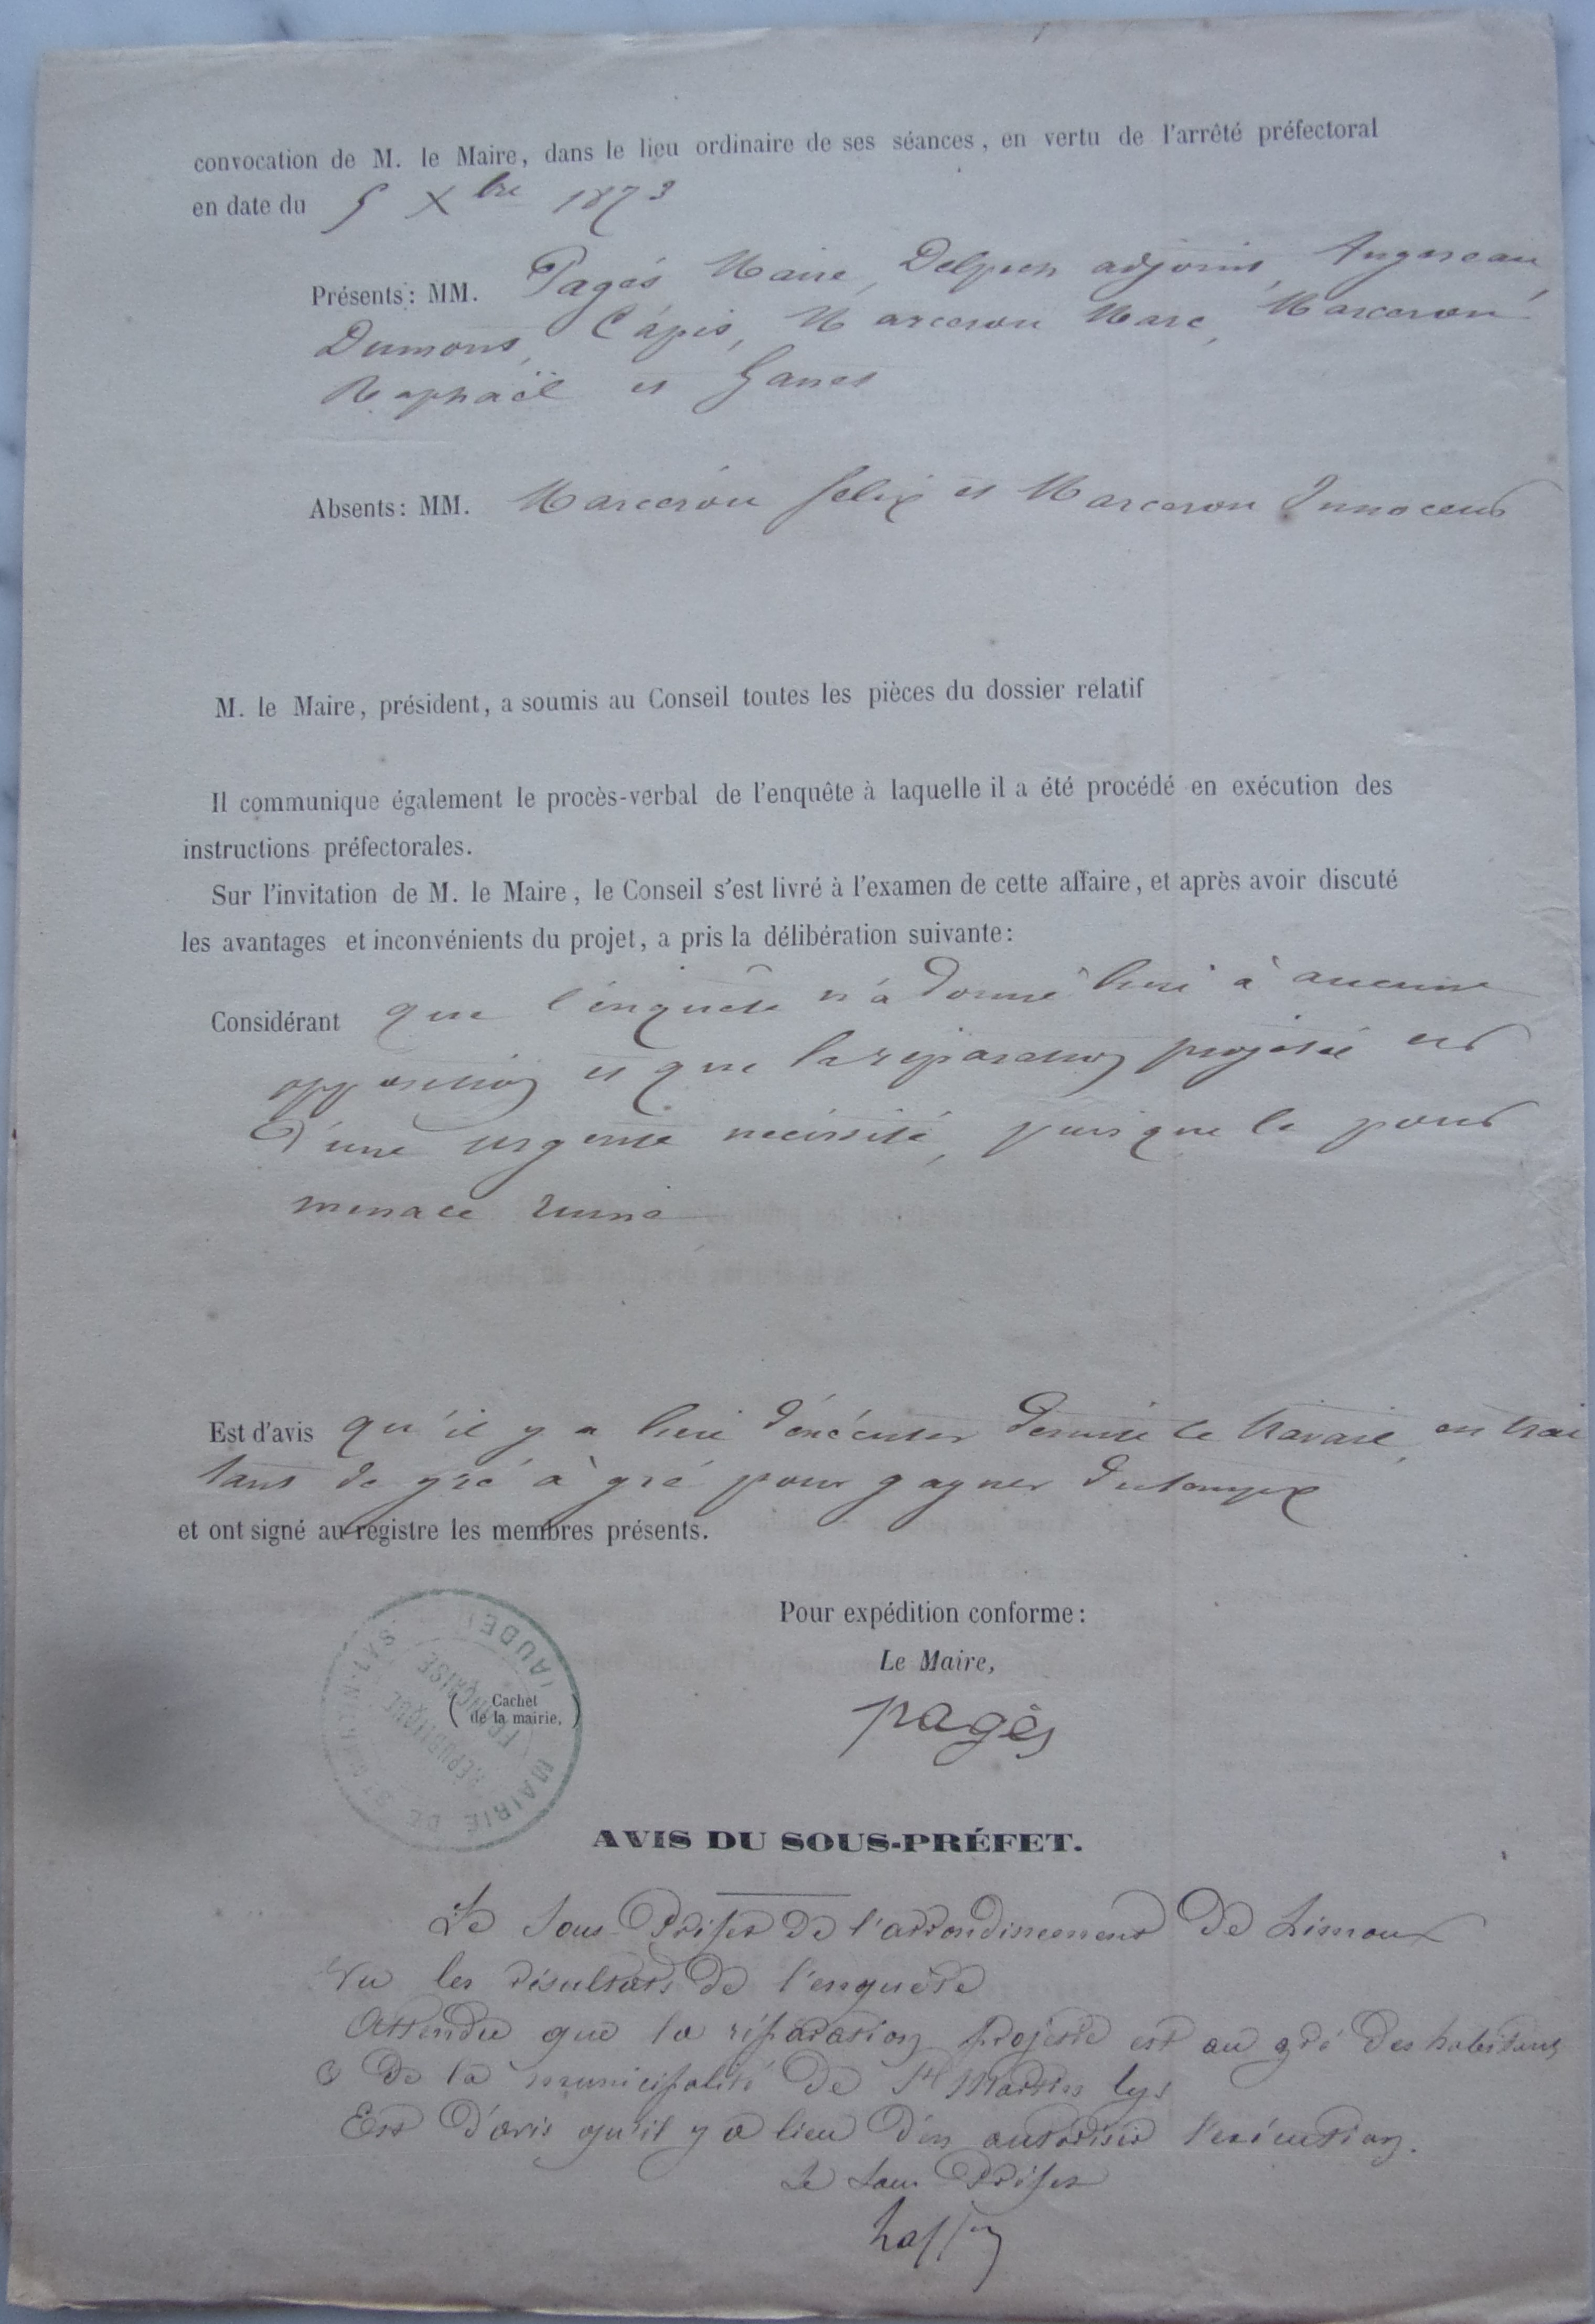 convocation de M. le Maire, dans le lieu ordinaire de ses séances, en vertu de l'arrêté préfectoral
en date du 5 Xbre 1873
Présents: MM. Pagès Maire, Delpech adjoint, Augereau
Dumons, Capis, Marceron Marc, Marceron
Raphaël et Ganet
Absents: MM. Marceron felix et Marceron Innocent
M. le Maire, président, a soumis au Conseil toutes les pièces du dossier relatif
Il communique également le procès-verbal de l'enquête à laquelle il a été procédé en exécution des
instructions préfectorales.
Sur l'invitation de M. le Maire, le Conseil s'est livré à l'examen de cette affaire, et après avoir discuté
les avantages et inconvénients du projet, a pris la délibération suivante:
Considérant que l'enquête n'a donné lieu à aucune
opposition et que la réparation projetée est
d'une urgente nécéssité, puisque le pont
menace ruine
Est d'avis qu'il y a lieu d'exécuter de suite le travail, en trai
tant de gré à gré pour gagner du temps
et ont signé au registre les membres présents.
Pour expédition conforme:
Le Maire,
pagès
(Cachet
de la mairie.)
MAIRIE DE St MARTIN-LYS (AUDE)
RÉPUBLIQUE
FRANÇAISE
AVIS DU SOUS-PRÉFET.
Le Sous Préfet de l'arrondissement de Limoux
Vu les résultats de l'enquête
Attendu que la réparation projetée est au gré des habitans
& de la municipalité de St Martin lys
Est d'avis qu'il y a lieu d'en autoriser l'exécution.
Le Sous Préfet